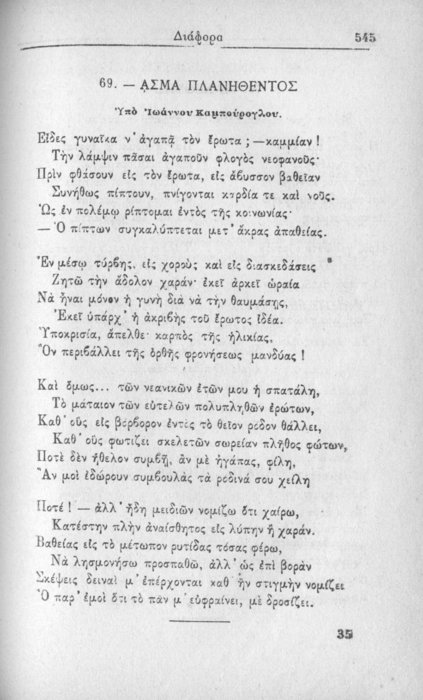 Διάφορα 545
69. — ΑΣΜΑ ΠΛΑΝΗΘΕΝΤΟΣ
Ὑπὸ Ἰωάννου Καμπούρογλου.
Εἶδες γυναῖκα ν' ἀγαπᾷ τὸν ἔρωτα ; —καμμίαν !
Τὴν λάμψιν πᾶσαι ἀγαποῦν φλογὸς νεοφανοῦς·
Πρὶν φθάσουν εἰς τὸν ἔρωτα, εἰς ἄβυσσον βαθεῖαν
Συνήθως πίπτουν, πνίγονται καρδία τε καὶ νοῦς.
Ὡς ἐν πολέμῳ ῥίπτομαι ἐντὸς τῆς κοινωνίας·
— Ὁ πίπτων συγκαλύπτεται μετ' ἄκρας ἀπαθείας.
Ἐν μέσῳ τύρβης, εἰς χοροὺς καὶ εἰς διασκεδάσεις
Ζητῶ τὴν ἄδολον χαράν· ἐκεῖ ἀρκεῖ ὡραία
Νὰ ᾖναι μόνον ἡ γυνὴ διὰ νὰ τὴν θαυμάσῃς,
Ἐκεῖ ὑπάρχ' ἡ ἀκριβὴς τοῦ ἔρωτος ἰδέα.
Ὑποκρισία, ἄπελθε· καρπὸς τῆς ἡλικίας,
Ὃν περιβάλλει τῆς ὀρθῆς φρονήσεως μανδύας !
Καὶ ὅμως... τῶν νεανικῶν ἐτῶν μου ἡ σπατάλη,
Τὸ μάταιον τῶν εὐτελῶν πολυπληθῶν ἐρώτων,
Καθ' οὓς εἰς βόρβορον ἐντὸς τὸ θεῖον ῥόδον θάλλει,
Καθ' οὓς φωτίζει σκελετῶν σωρείαν πλῆθος φώτων,
Ποτὲ δὲν ἤθελον συμβῇ, ἂν μὲ ἠγάπας, φίλη,
Ἄν μοι ἐδώρουν συμβουλὰς τὰ ῥοδινά σου χείλη
Ποτέ ! — ἀλλ' ἤδη μειδιῶν νομίζω ὅτι χαίρω,
Κατέστην πλὴν ἀναίσθητος εἰς λύπην ἢ χαράν.
Βαθείας εἰς τὸ μέτωπον ῥυτίδας τόσας φέρω,
Νὰ λησμονήσω προσπαθῶ, ἀλλ' ὡς ἐπὶ βορὰν
Σκέψεις δειναί μ' ἐπέρχονται καθ' ἣν στιγμὴν νομίζει
Ὁ παρ' ἐμοὶ ὅτι τὸ πᾶν μ' εὐφραίνει, μὲ δροσίζει.
35